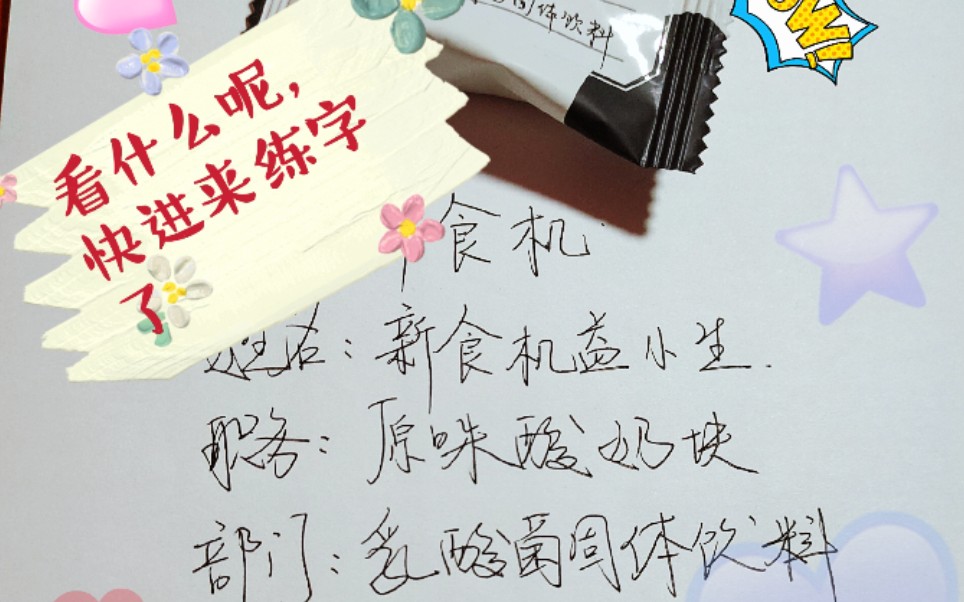 固体饮料
WOW!
看什么呢,
快进来练字
了
食机
姓名:新食机益小生.
职务:原味酸奶块
部门:乳酸菌固体饮料